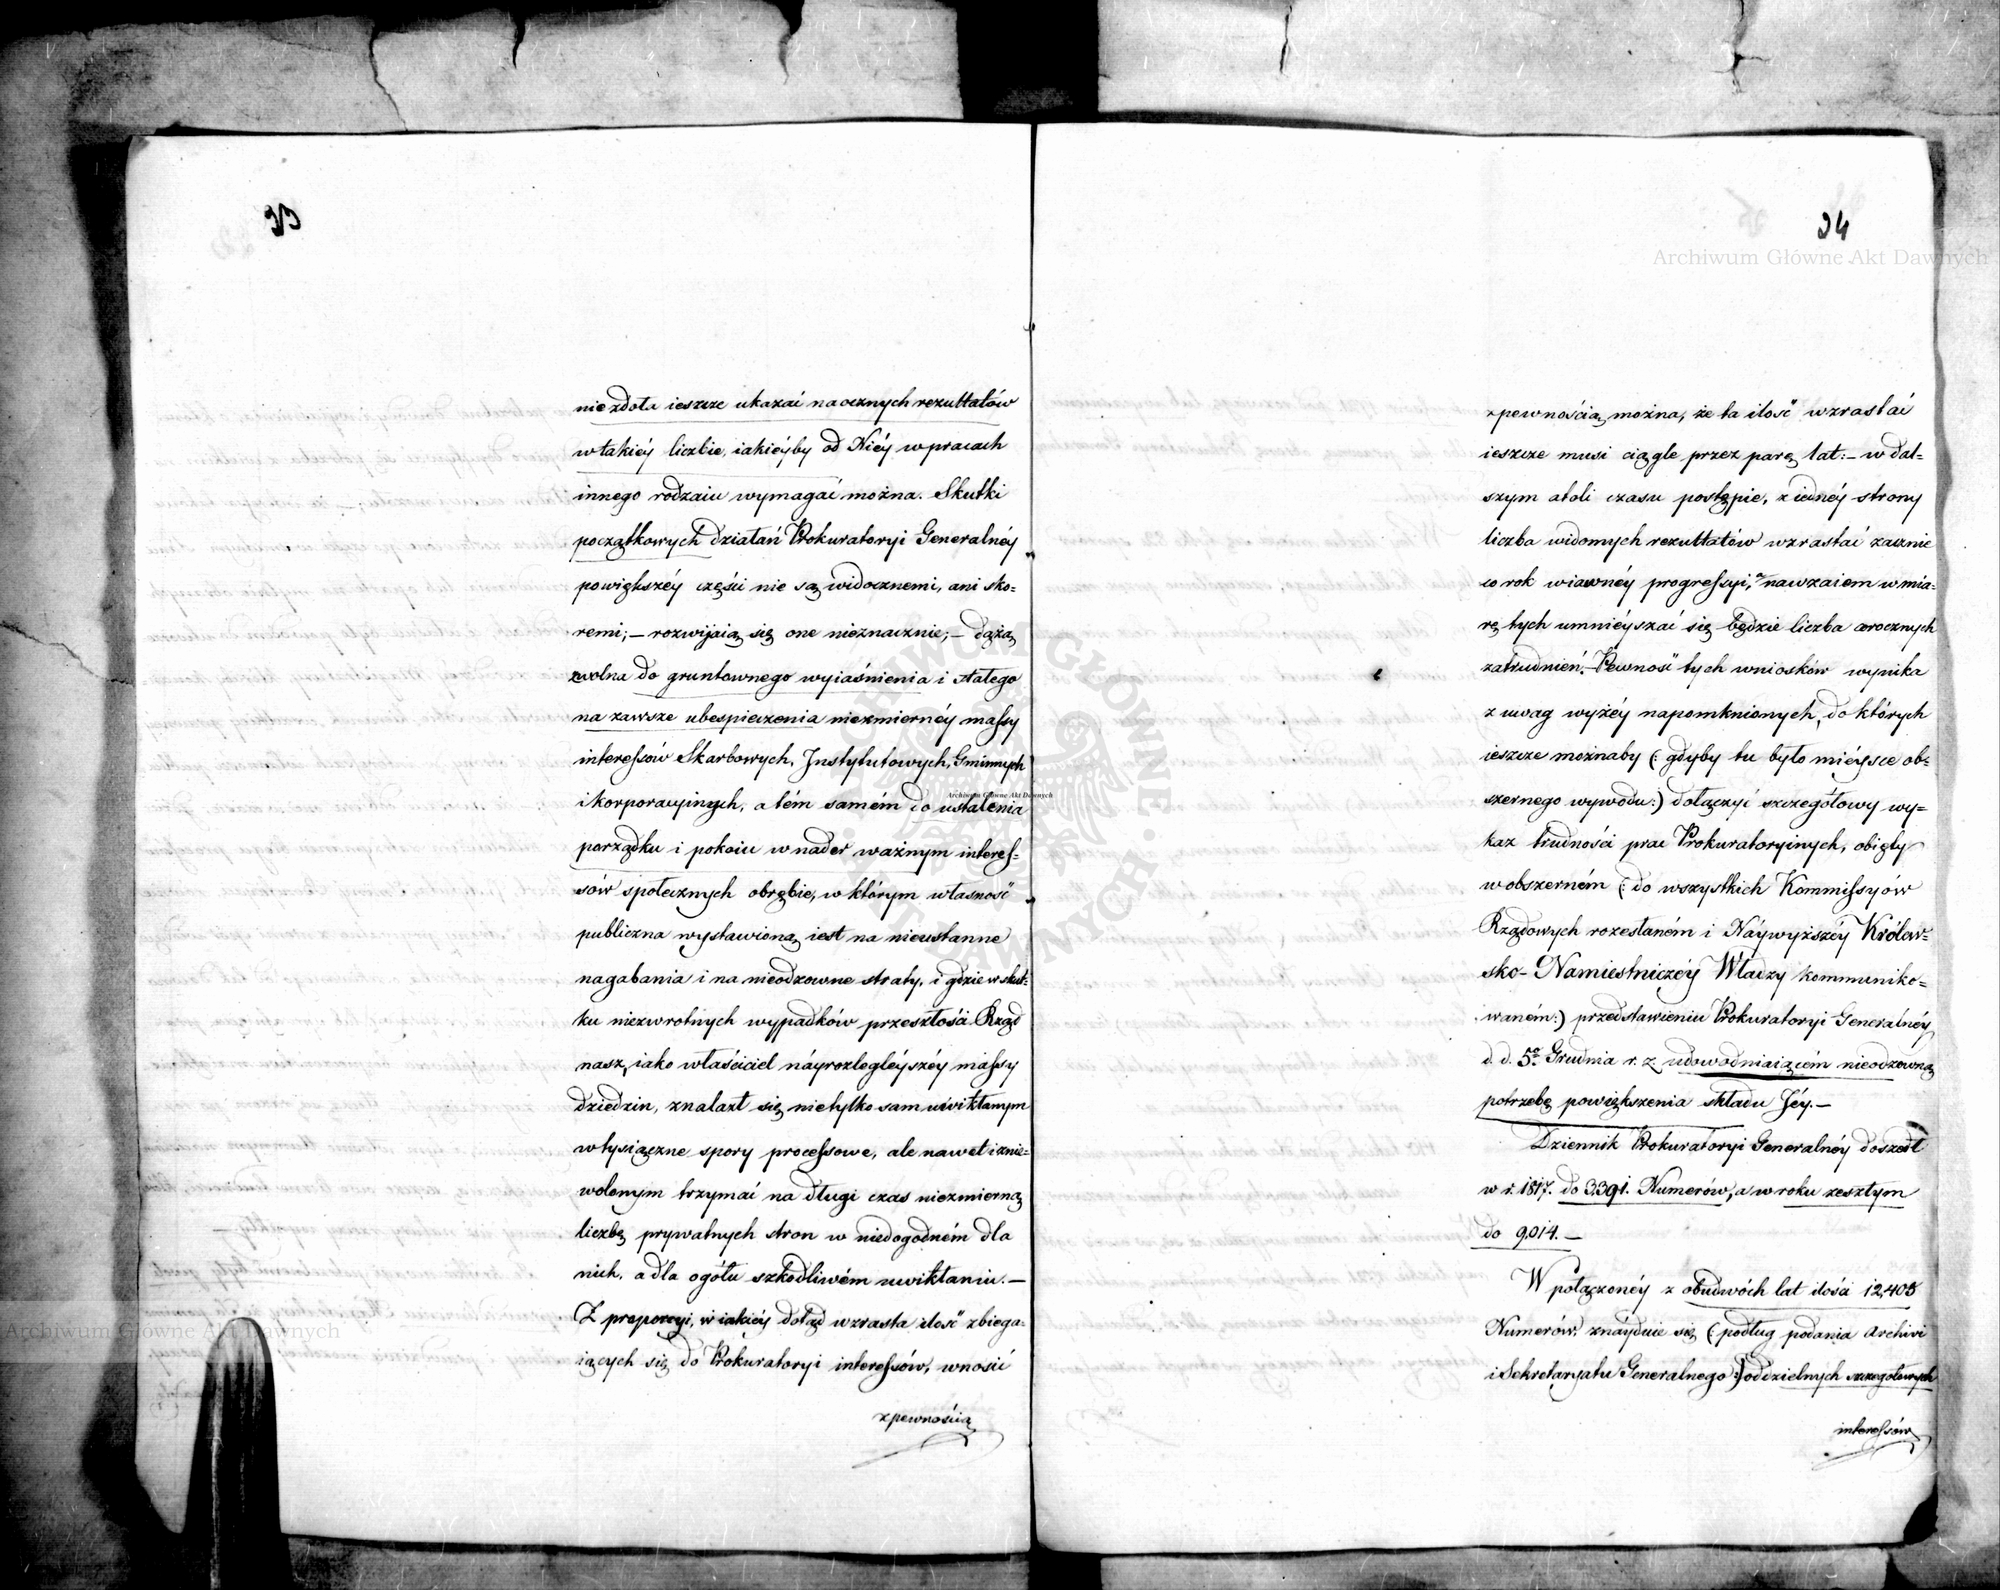 33
nie zdoła ieszcze ukazać naocznych rezultatów
w takiéy liczbie, iakiéyby od Niéy w pracach
innego rodzaiu wymagać można. Skutki
początkowych działań Prokuratoryi Generalnéy
powiększéy części nie są widocznemi, ani sko=
remi; – rozwijaią się one nieznacznie; – dążą
zwolna do gruntownego wyiaśnienia i stałego
na zawsze ubespieczenia niezmiernéy massy
interessów Skarbowych, Instytutowych, Gminnych
i korporacyinych, a tém samém do ustalenia
porządku i pokoiu w nader ważnym interes=
sów społecznych obrębie, w którym własność
publiczna wystawioną iest na nieustanne
nagabania i na nieodzowne straty, i gdzie w skut=
ku niezwrotnych wypadków przeszłości Rząd
nasz, iako właściciel náyrozlegléyszéy massy
dziedzin, znalazł się nietylko sam uwikłanym
w tysiączne spory processowe, ale nawet i znie=
wolonym trzymać na długi czas niezmierną
liczbę prywatnych stron w niedogodném dla
nich, a dla ogółu szkodliwém uwikłaniu. –
Z proporcyi, w iakiéy dotąd wzrasta ilość zbiega=
iących się do Prokuratoryi interessów, wnosić
z pewnością
34
z pewnością można, że ta ilość wzrastać
ieszcze musi ciągle przez parę lat: – w dal=
szym atoli czasu postępie, z iednéy strony
liczba widomych rezultatów wzrastać zacznie
co rok w iawnéy progressyi, a nawzaiem w mia=
rę tych umniéyszać się będzie liczba corocznych
zatrudnień. – Pewność tych wniosków wynika
z uwag wyżéy napomknionych, do których
ieszcze możnaby (: gdyby tu było miéysce ob=
szernego wywodu :) dołączyć szczegółowy wy=
kaz trudności prac Prokuratoryinych, obięty
w obszerném (: do wszystkich Kommissyów
Rządowych rozesłaném i Náywyższéy Królew=
sko- Namiestniczéy Władzy kommuniko=
waném :) przedstawieniu Prokuratoryi Generalnéy
d. d. 5º Grudnia r. z. udowodniaiącém nieodzowną
potrzebę powiększenia składu Jéy. –
Dziennik Prokuratoryi Generalnéy doszedł
w r. 1817. do 3391. Numerów, a w roku zeszłym
do 9,014. –
W połączonéy z obudwóch lat ilości 12,405
Numerów, znáyduie się (: podług podania Archivi
i Sekretaryatu Generalnego :) oddzielnych szczegółowych
interessów
Archiwum Główne Akt Dawnych
Archiwum Główne Akt Dawnych
Archiwum Główne Akt Dawnych